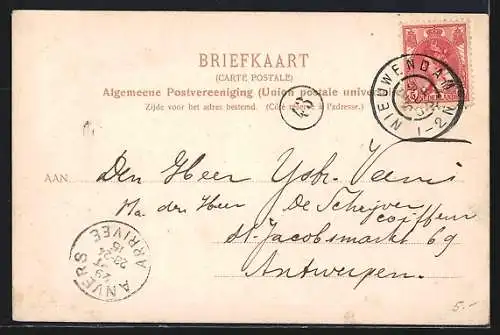 BRIEFKAART
(CARTE POSTALE)
Algemeene Postvereeniging (Union postale unive
Zijde voor het adres bestemd. (Côté réservé à l'adresse.)
NIEUWENDAM
1-2N
AAN
Den Heer Ysbr. Venis
Na den Heer De Schijver
coiffeur
St. Jacobsmarkt 69
Antwerpen.
ANVERS
29
23-24
ARRIVÉE
5.-